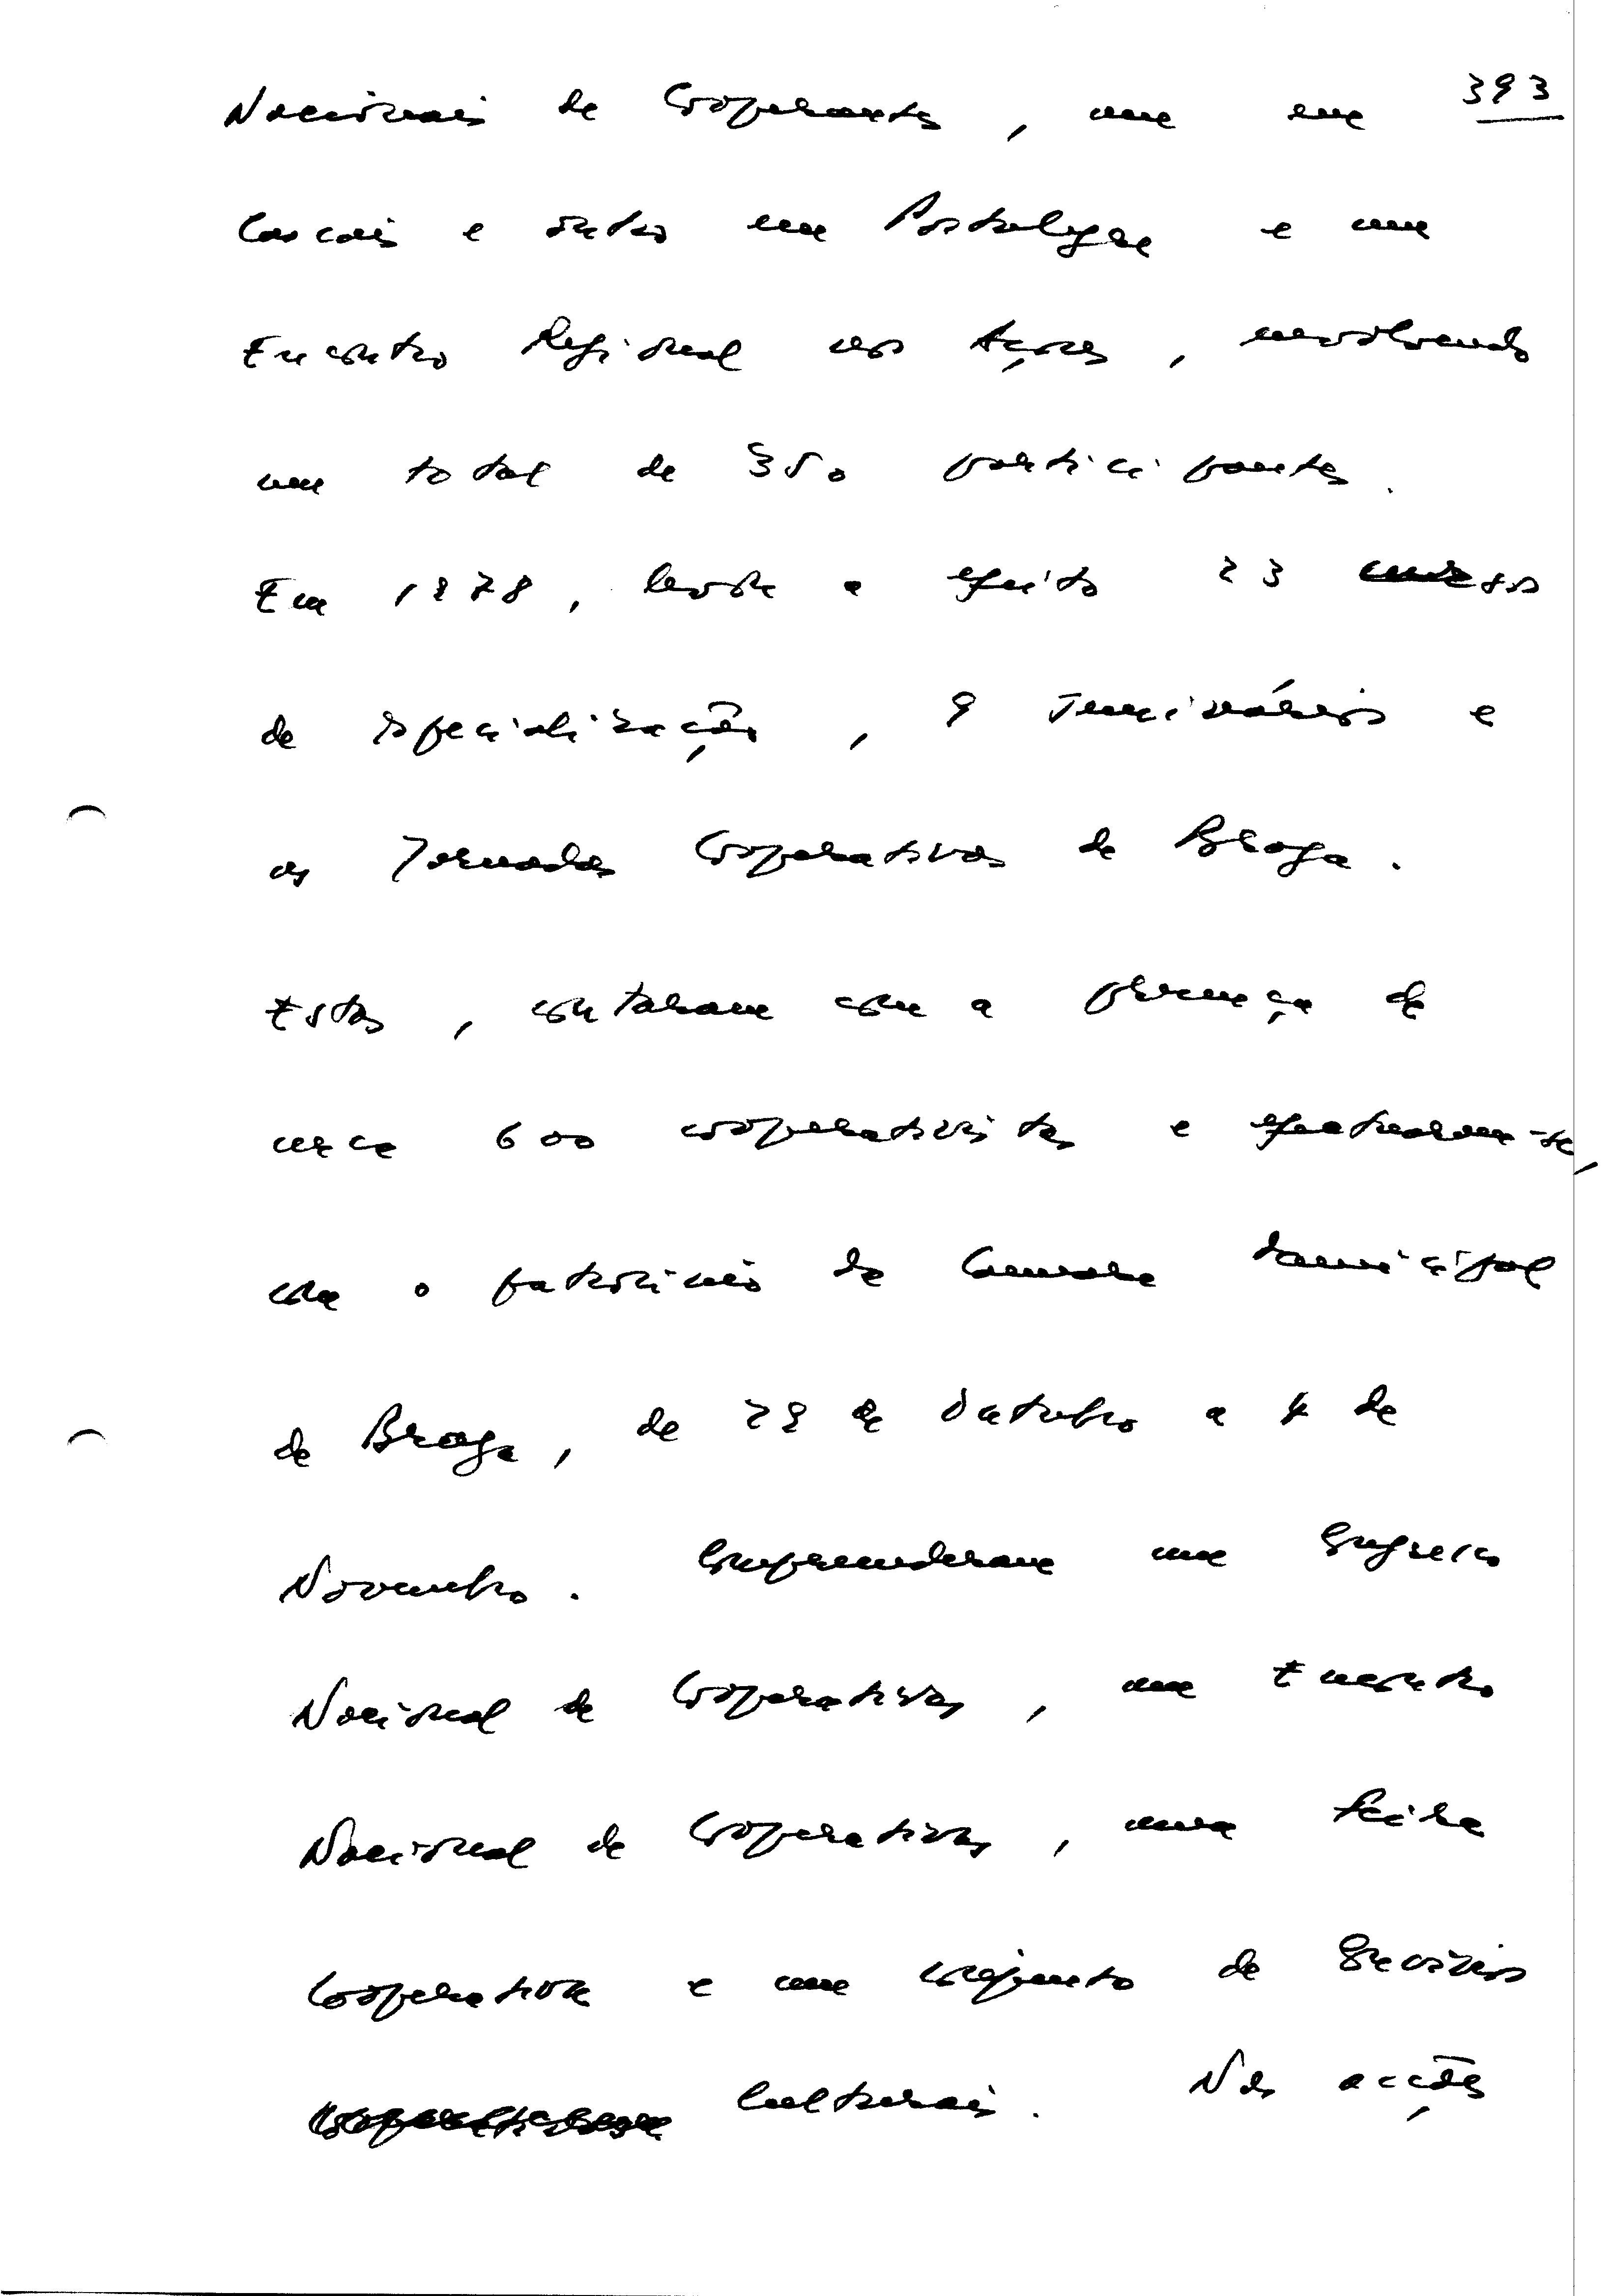 393
Nacionais de Cooperantes, um em
Cascais e outro em Portalegre e um
Encontro Regional nos Açores, envolvendo
um total de 350 participantes.
Em 1978, levou a efeito 23 cursos
de especialização, 9 Seminários e
as Jornadas Cooperativas de Braga.
Estas, contaram com a presença de
cerca 600 cooperativistas e efectuaram-se,
com o patrocínio da Câmara Municipal
de Braga, de 28 de Outubro a 4 de
Novembro. Compreenderam um Congresso
Nacional de Cooperativas, um Encontro
Nacional de Cooperativas, uma Feira
Cooperativa e um conjunto de
Culturais. Nas acções